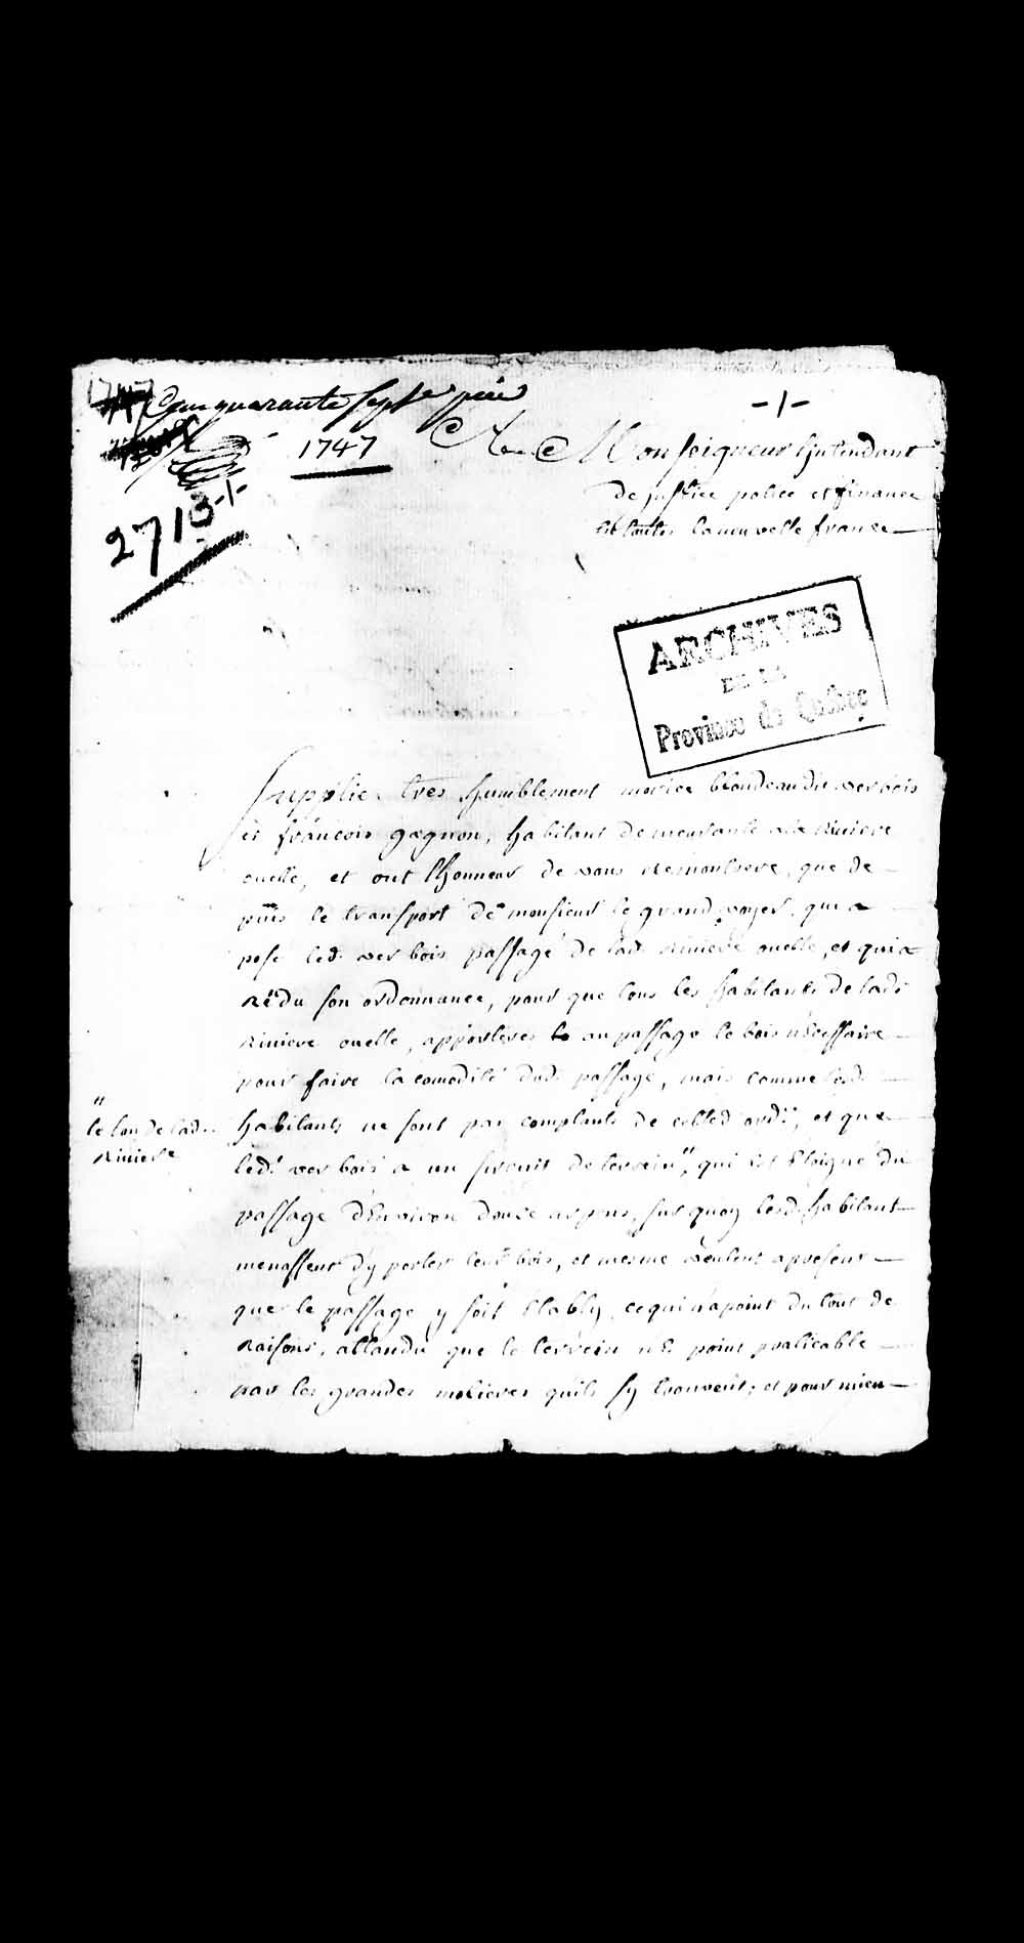 1747
quarante sept pier
1747
2713
-/-
A Monseigneur Lintendant
de justice police et finance
toutes la nouvelle france
ARCHIVES
DE LA
Province de Québec
Supplie tres humblement morice blondeau dit verbois
et francois gagnon, habitant demeurants a la Riviere
ouelle, et ont lhonneur de vous Remontrere, que de
puis le transport de monsieur le grand voyer, qui a
pose led. verbois passage de lad. Riviere ouelle, et qui a
Rēdu son ordonnance, pour que tous les habitants de lade
Riviere ouelle, apporteres au passage le bois nécessaire
pour faire la comodité dud. passage, mais comme lesd.
habitants ne sont pas complants de cette d. ord.ce, et que
led.t verbois a un terrein", qui est Eloigné du
" le lon de lad.
Riviere
passage d'Environ douze arpens, sur quoy lesd. habitant
menassent d'y porter leur bois, et mesme veulent apresent
que le passage y soit Etably, ce qui n'a point du tout de
Raisons, attandu que le terrein n'E point praticable
par les grandes molieres quils sy trouvent; et pour mieu